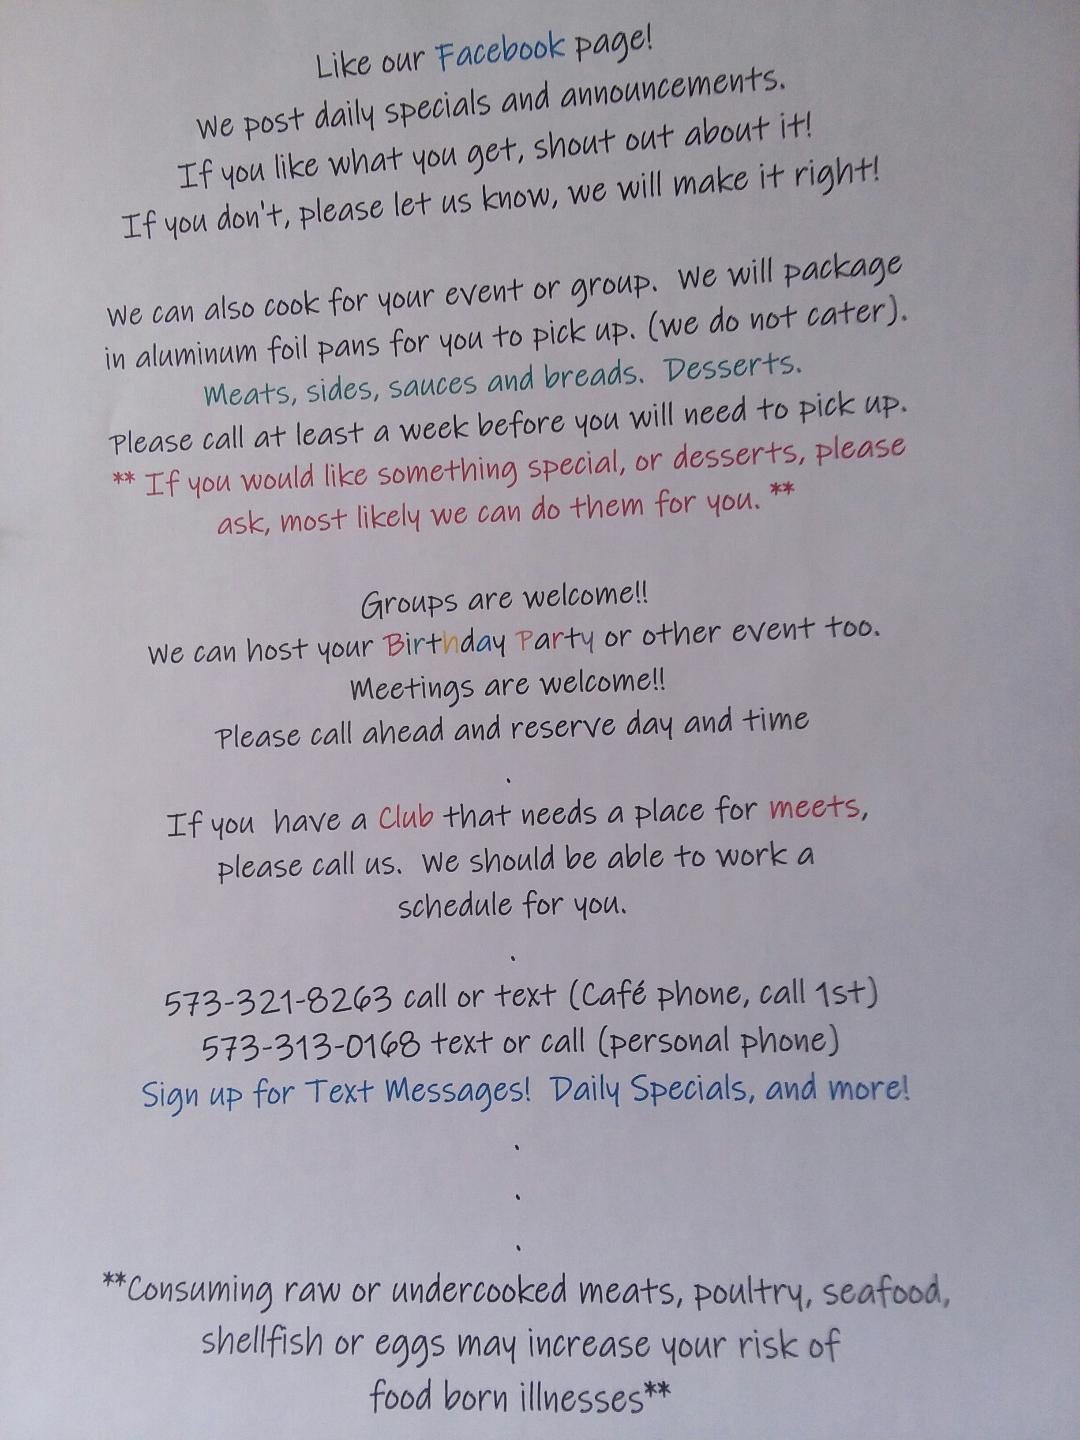 Like our Facebook page!
We post daily specials and announcements.
If you like what you get, shout out about it!
If you don't, please let us know, we will make it right!
We can also cook for your event or group. We will package
in aluminum foil pans for you to pick up. (we do not cater).
Meats, sides, sauces and breads. Desserts.
Please call at least a week before you will need to pick up.
** If you would like something special, or desserts, please
ask, most likely we can do them for you. **
Groups are welcome!!
We can host your Birthday Party or other event too.
Meetings are welcome!!
Please call ahead and reserve day and time
.
If you have a Club that needs a place for meets,
please call us. We should be able to work a
schedule for you.
.
573-321-8263 call or text (Café phone, call 1st)
573-313-0168 text or call (personal phone)
Sign up for Text Messages! Daily Specials, and more!
.
.
.
**Consuming raw or undercooked meats, poultry, seafood,
shellfish or eggs may increase your risk of
food born illnesses**